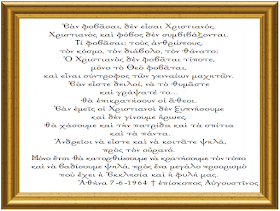 Ἐὰν φοβᾶσαι, δὲν εἶσαι Χριστιανός.
Χριστιανὸς καὶ φόβος δὲν συμβιβάζονται.
Τί φοβᾶσαι; τοὺς ἀνθρώπους,
τὸν κόσμο, τὸν διάβολο, τὸν θάνατο;
Ὁ Χριστιανὸς δὲν φοβᾶται τίποτε,
μόνο τὸ Θεὸ φοβᾶται,
καὶ εἶναι σύντροφος τῶν γενναίων μαχητῶν.
Ἐὰν εἶστε δειλοί, νὰ τὸ θυμᾶστε
καὶ γράψατέ το...
θὰ ἐπικρατήσουν οἱ ἄθεοι.
Ἐὰν ἐμεῖς οἱ Χριστιανοὶ δὲν ξυπνήσουμε
καὶ δὲν γίνουμε ἥρωες,
θὰ χάσουμε καὶ τὴν πατρίδα καὶ τὰ σπίτια
καὶ τὰ πάντα.
Ἀνδρεῖοι νὰ εἶστε καὶ νὰ κοιτᾶτε ψηλά,
πρὸς τὸν οὐρανό.
Μόνο ἔτσι θὰ κατορθώσουμε νὰ κρατήσουμε τὸν τόπο
καὶ νὰ βαδίσουμε ψηλά, πρὸς ἕνα μεγάλο προορισμὸ
ποὺ ἔχει ἡ Ἐκκλησία καὶ ἡ φυλή μας.
Ἀθήνα 7-6-1964 † ἐπίσκοπος Αὐγουστῖνος